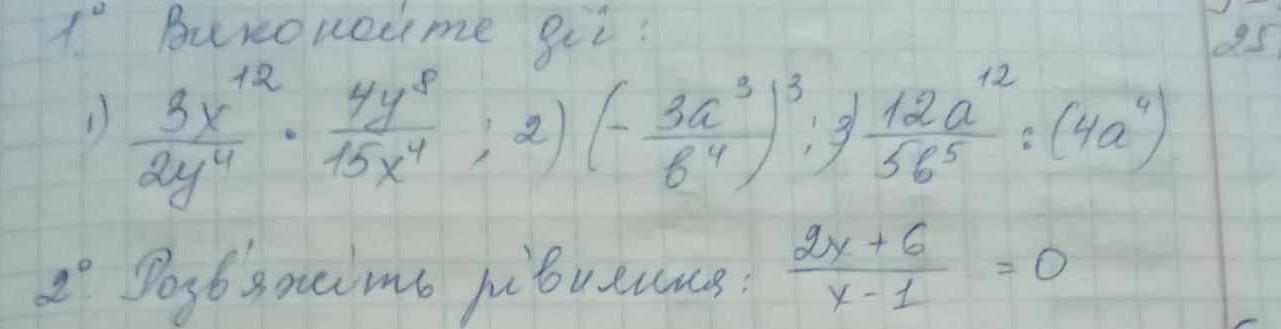 1.° Виконайте дії:
1) 3x¹²/2y⁴ · 4y⁸/15x⁴ ; 2) (- 3a³/b⁴)³ ; 3) 12a¹²/5b⁵ : (4a⁴)
2.° Розв'яжіть рівняння: 2x + 6/x - 1 = 0
25